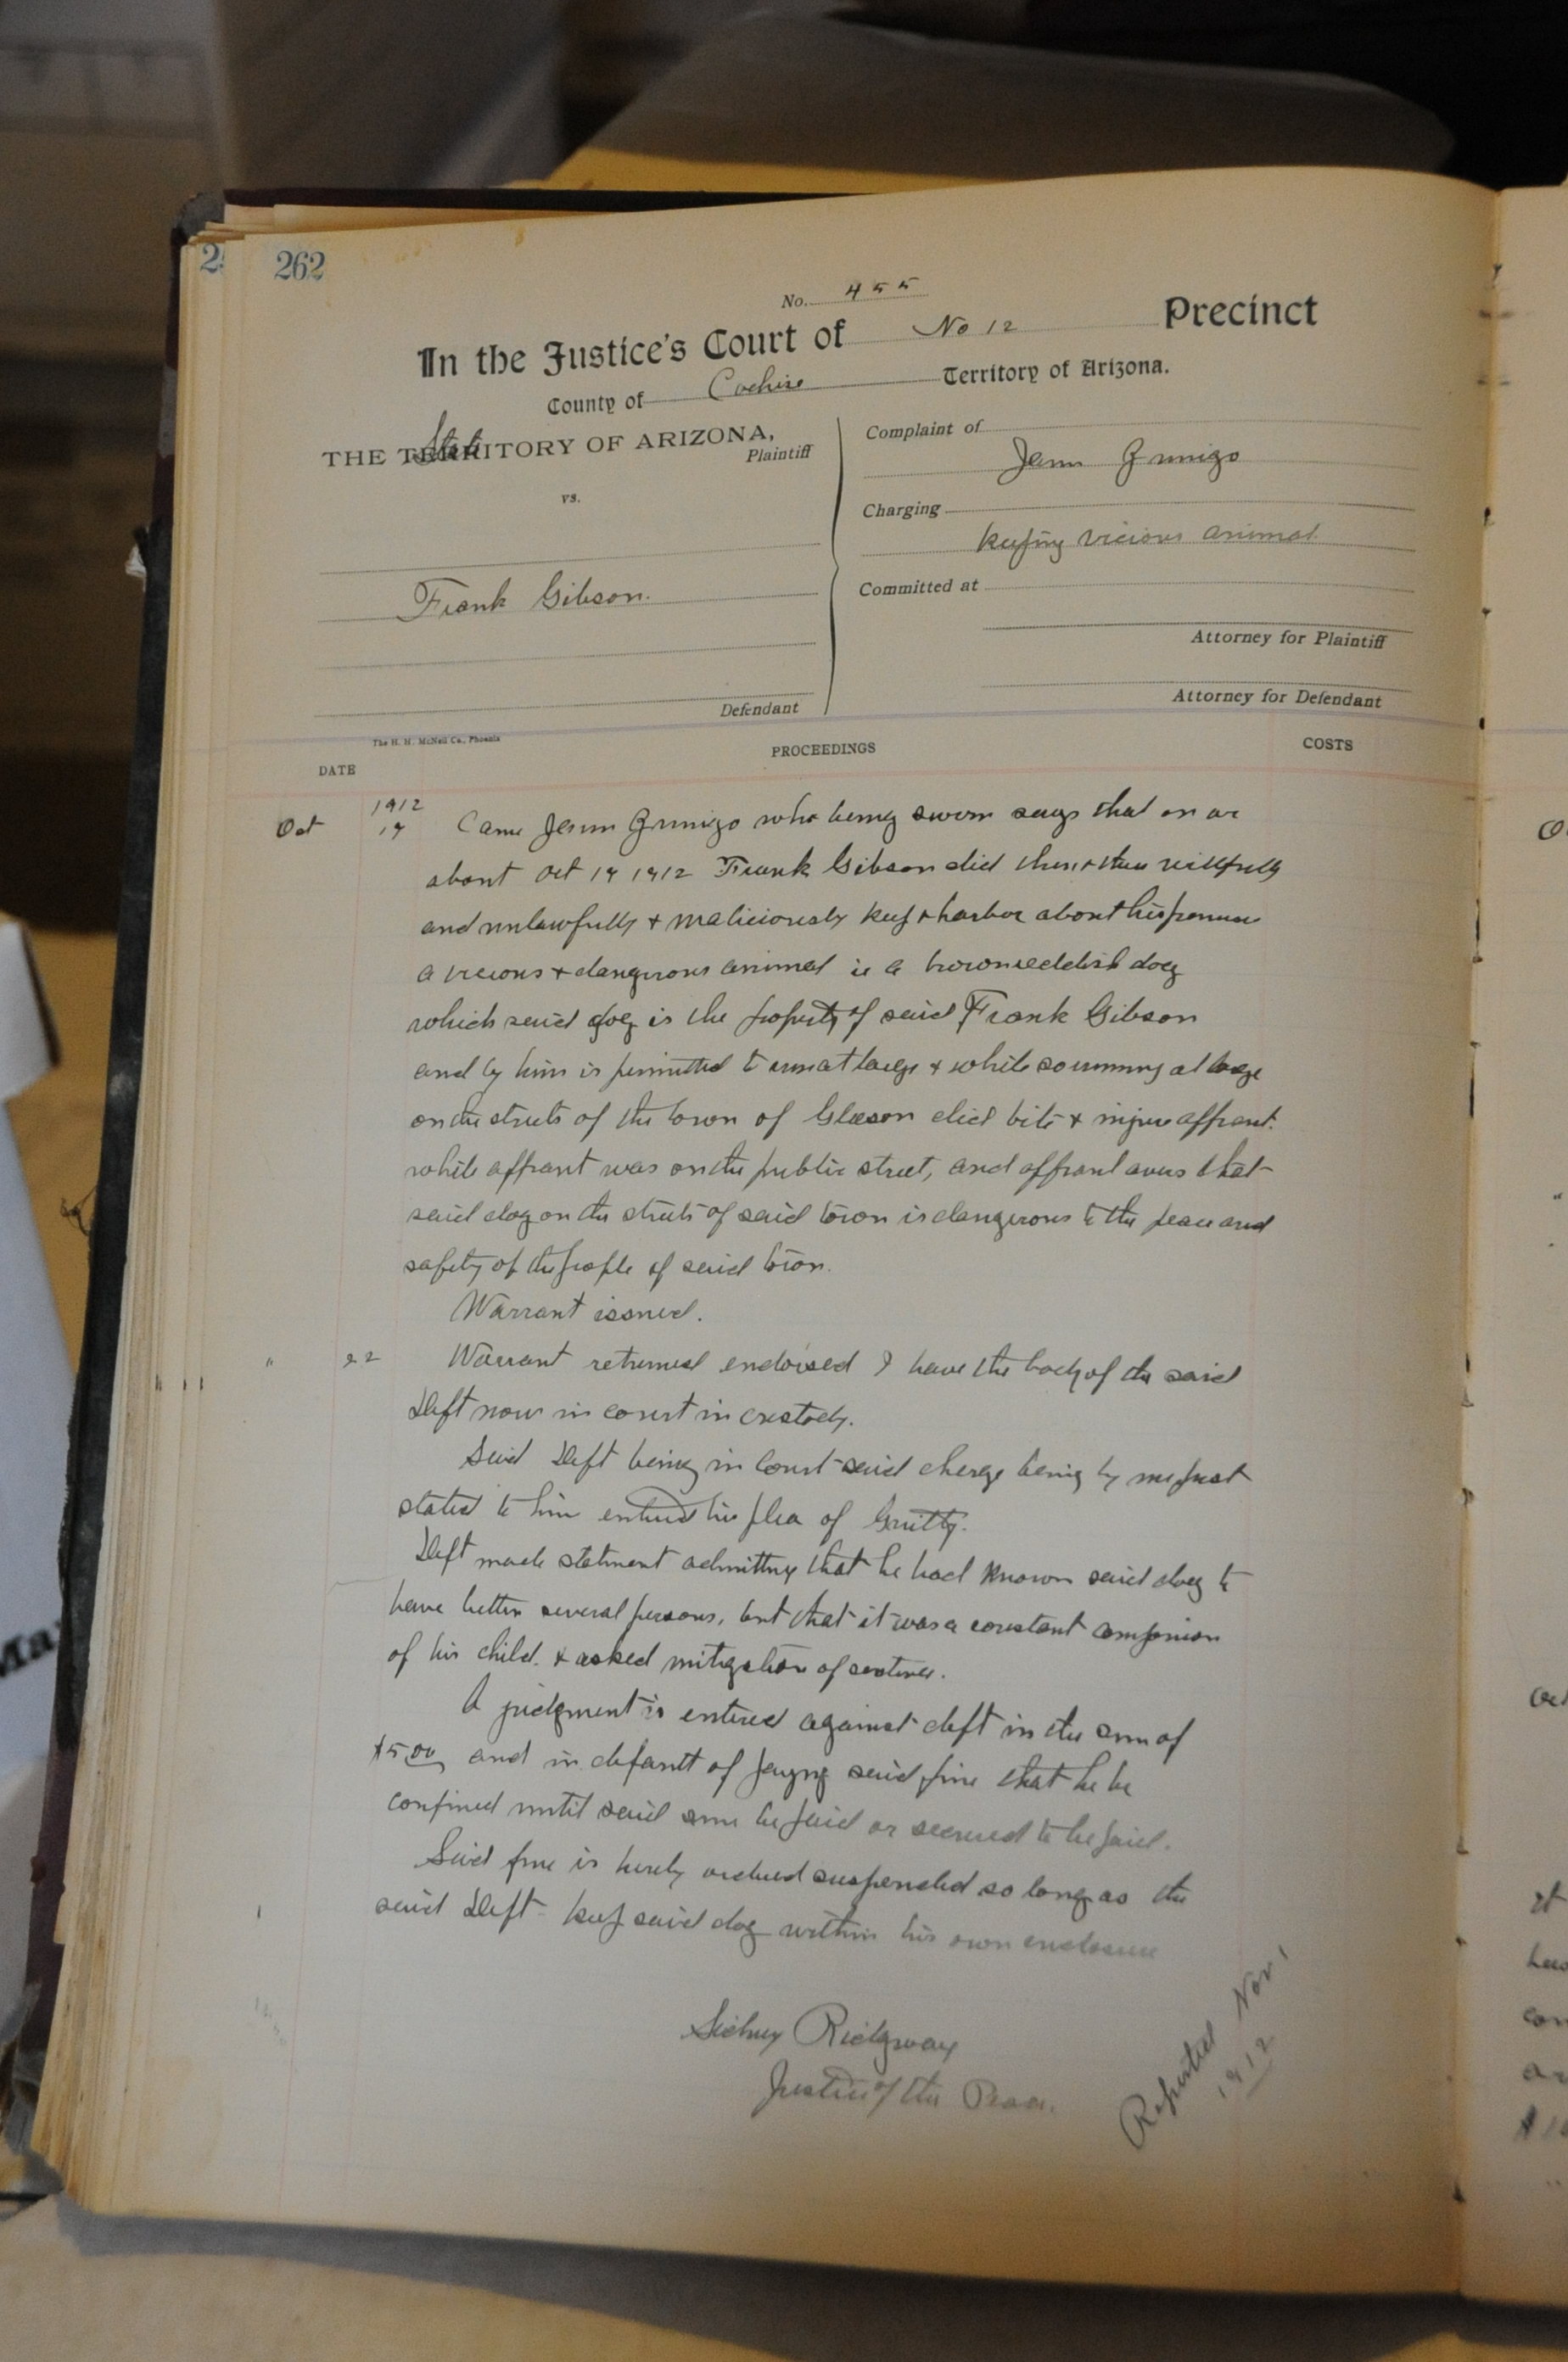 262
No. 455
In the Justice's Court of No 12 Precinct
County of Cochise Territory of Arizona.
State
THE TERRITORY OF ARIZONA,
Plaintiff
vs.
Frank Gibson.
Defendant
Complaint of
Charging
keeping vicious animal
Committed at
Attorney for Plaintiff
Attorney for Defendant
The H. H. McNeil Co., Phoenix
DATE PROCEEDINGS COSTS
1912
Oct 19 Came who being sworn says that on or
about Oct 19 1912 Frank Gibson did then & there willfully
and unlawfully & maliciously keep & harbor about his premises
a vicious & dangerous animal ie a brown reddish dog
which said dog is the property of said Frank Gibson
and by him is permitted to run at large & while so running at large
on the streets of the town of Gleeson did bite & injure affiant.
while affiant was on the public street, and affiant avers that
said dog on the streets of said town is dangerous to the peace and
safety of the people of said town.
Warrant issued.
" 22 Warrant returned endorsed I have the body of the said
Deft now in court in custody.
Said Deft being in Court said charge being by me first
stated to him entered his plea of Guilty.
Deft made statment admitting that he had known said dog to
have bitten several persons, but that it was a constant companion
of his child. & asked mitigation of sentence.
A judgment is entered against deft in the sum of
$5.00 and in default of paying said fine that he be
confined until said sum be paid or secured to be paid.
Said fine is hereby ordered suspended so long as the
said Deft keep said dog within his own enclosure
Sidney Ridgway
Justice of the Peace.
Reported Nov 1
1912